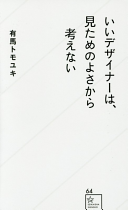 いいデザイナーは、
見ためのよさから
考えない
有馬トモユキ
64